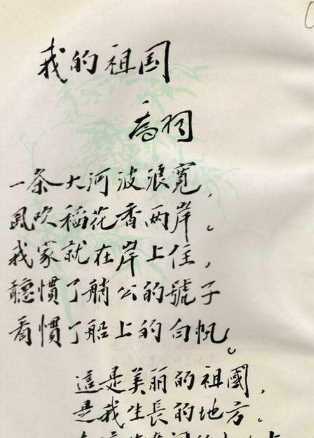 我的祖国
喬羽
一条大河波浪寬，
風吹稻花香两岸。
我家就在岸上住，
聽慣了艄公的號子
看慣了船上的白帆。
這是美丽的祖國，
是我生長的地方。